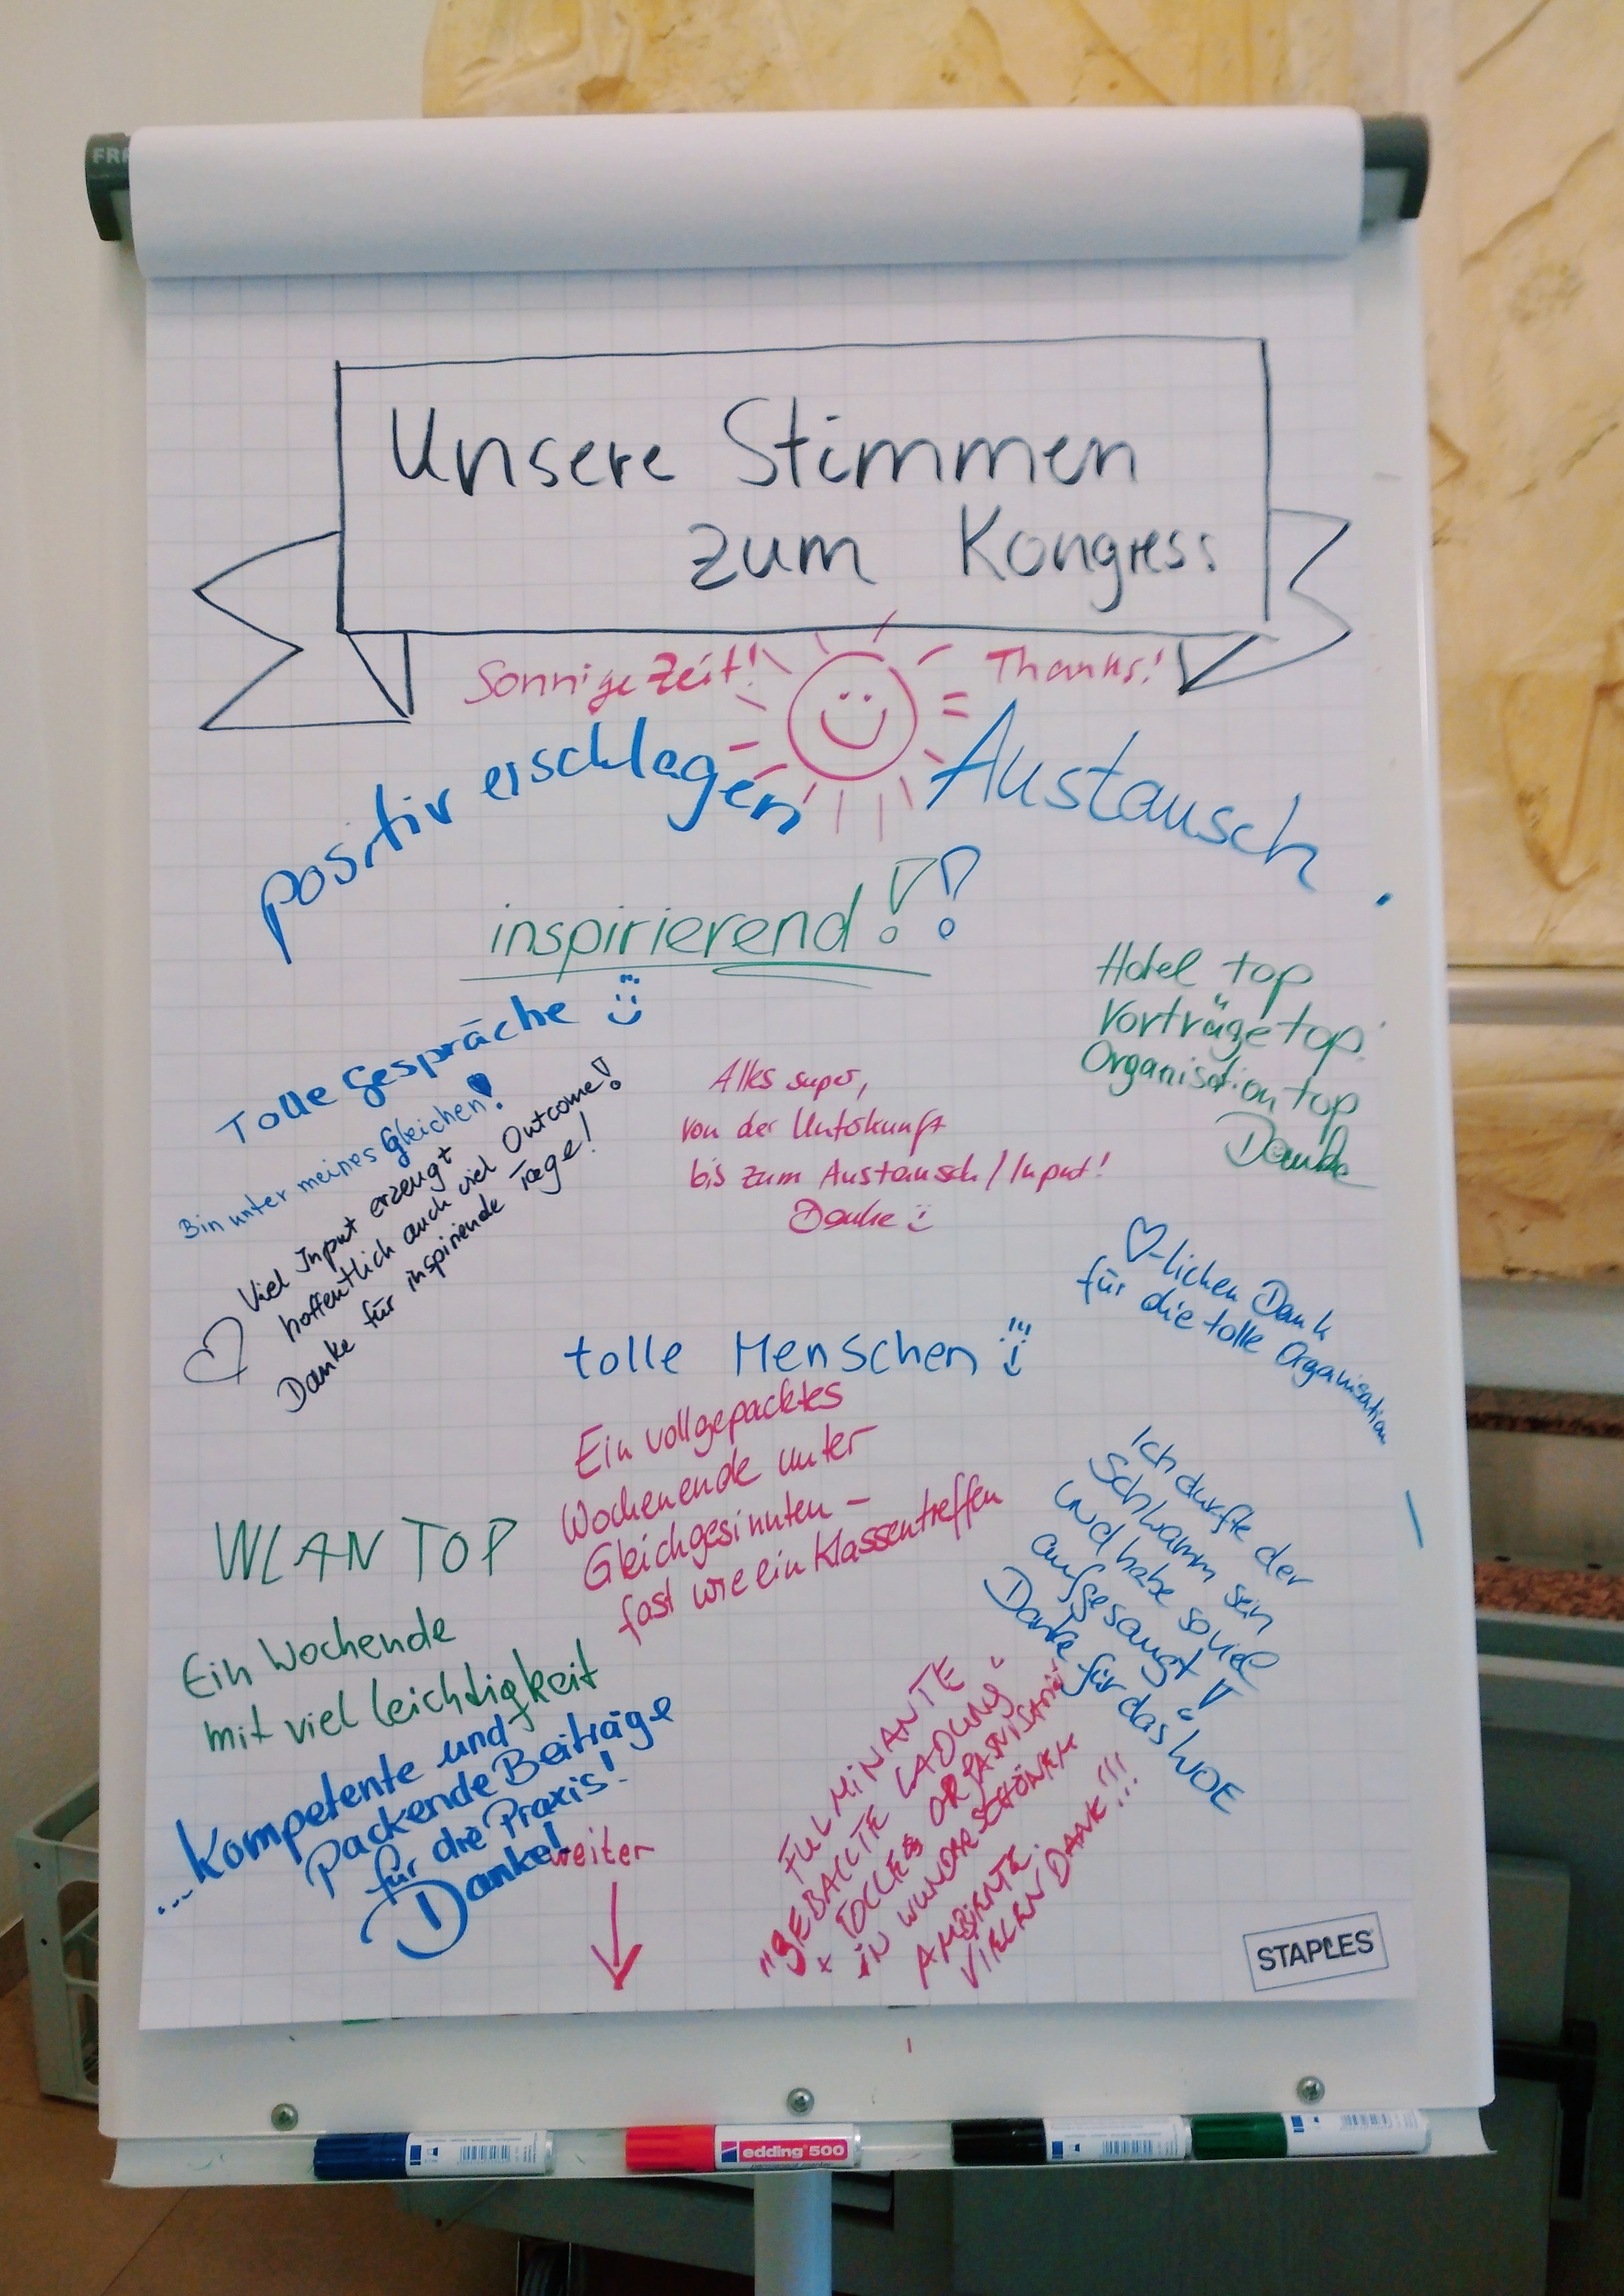 FRA
Unsere Stimmen
zum Kongress
Sonnige Zeit!
Thanks!
positiv erschlagen
Austausch
inspirierend!!
Hotel top
Vorträge top
Organisation top
Danke
Tolle Gespräche
Bin unter meines Gleichen!
Viel Input erzeugt
hoffentlich auch viel Outcome!
Danke für inspiriende Tage!
Alles super,
von der Unterkunft
bis zum Austausch/Input!
Danke
-lichen Dank
für die tolle Organisation
tolle Menschen
Ein vollgepacktes
Wochenende unter
Gleichgesinnten –
fast wie ein Klassentreffen
Ich durfte der
Schwamm sein
und habe soviel
aufgesaugt
Danke für das WOE
WLAN TOP
Ein Wochende
mit viel Leichtigkeit
...Kompetente und
Packende Beiträge
für die Praxis!
Danke!
weiter
FULMINANTE
"GEBALLTE LADUNG"
+ TOLLE ORGANISATION
IN WUNDERSCHÖNEM
AMBIENTE.
VIELEN DANK!!!
STAPLES
edding 500